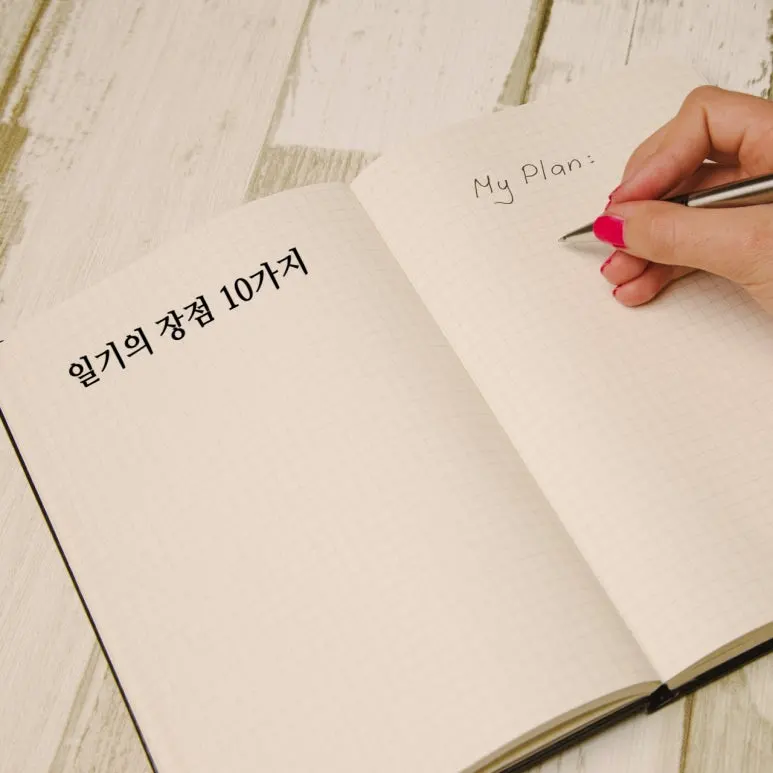 일기의 장점 10가지
My Plan: